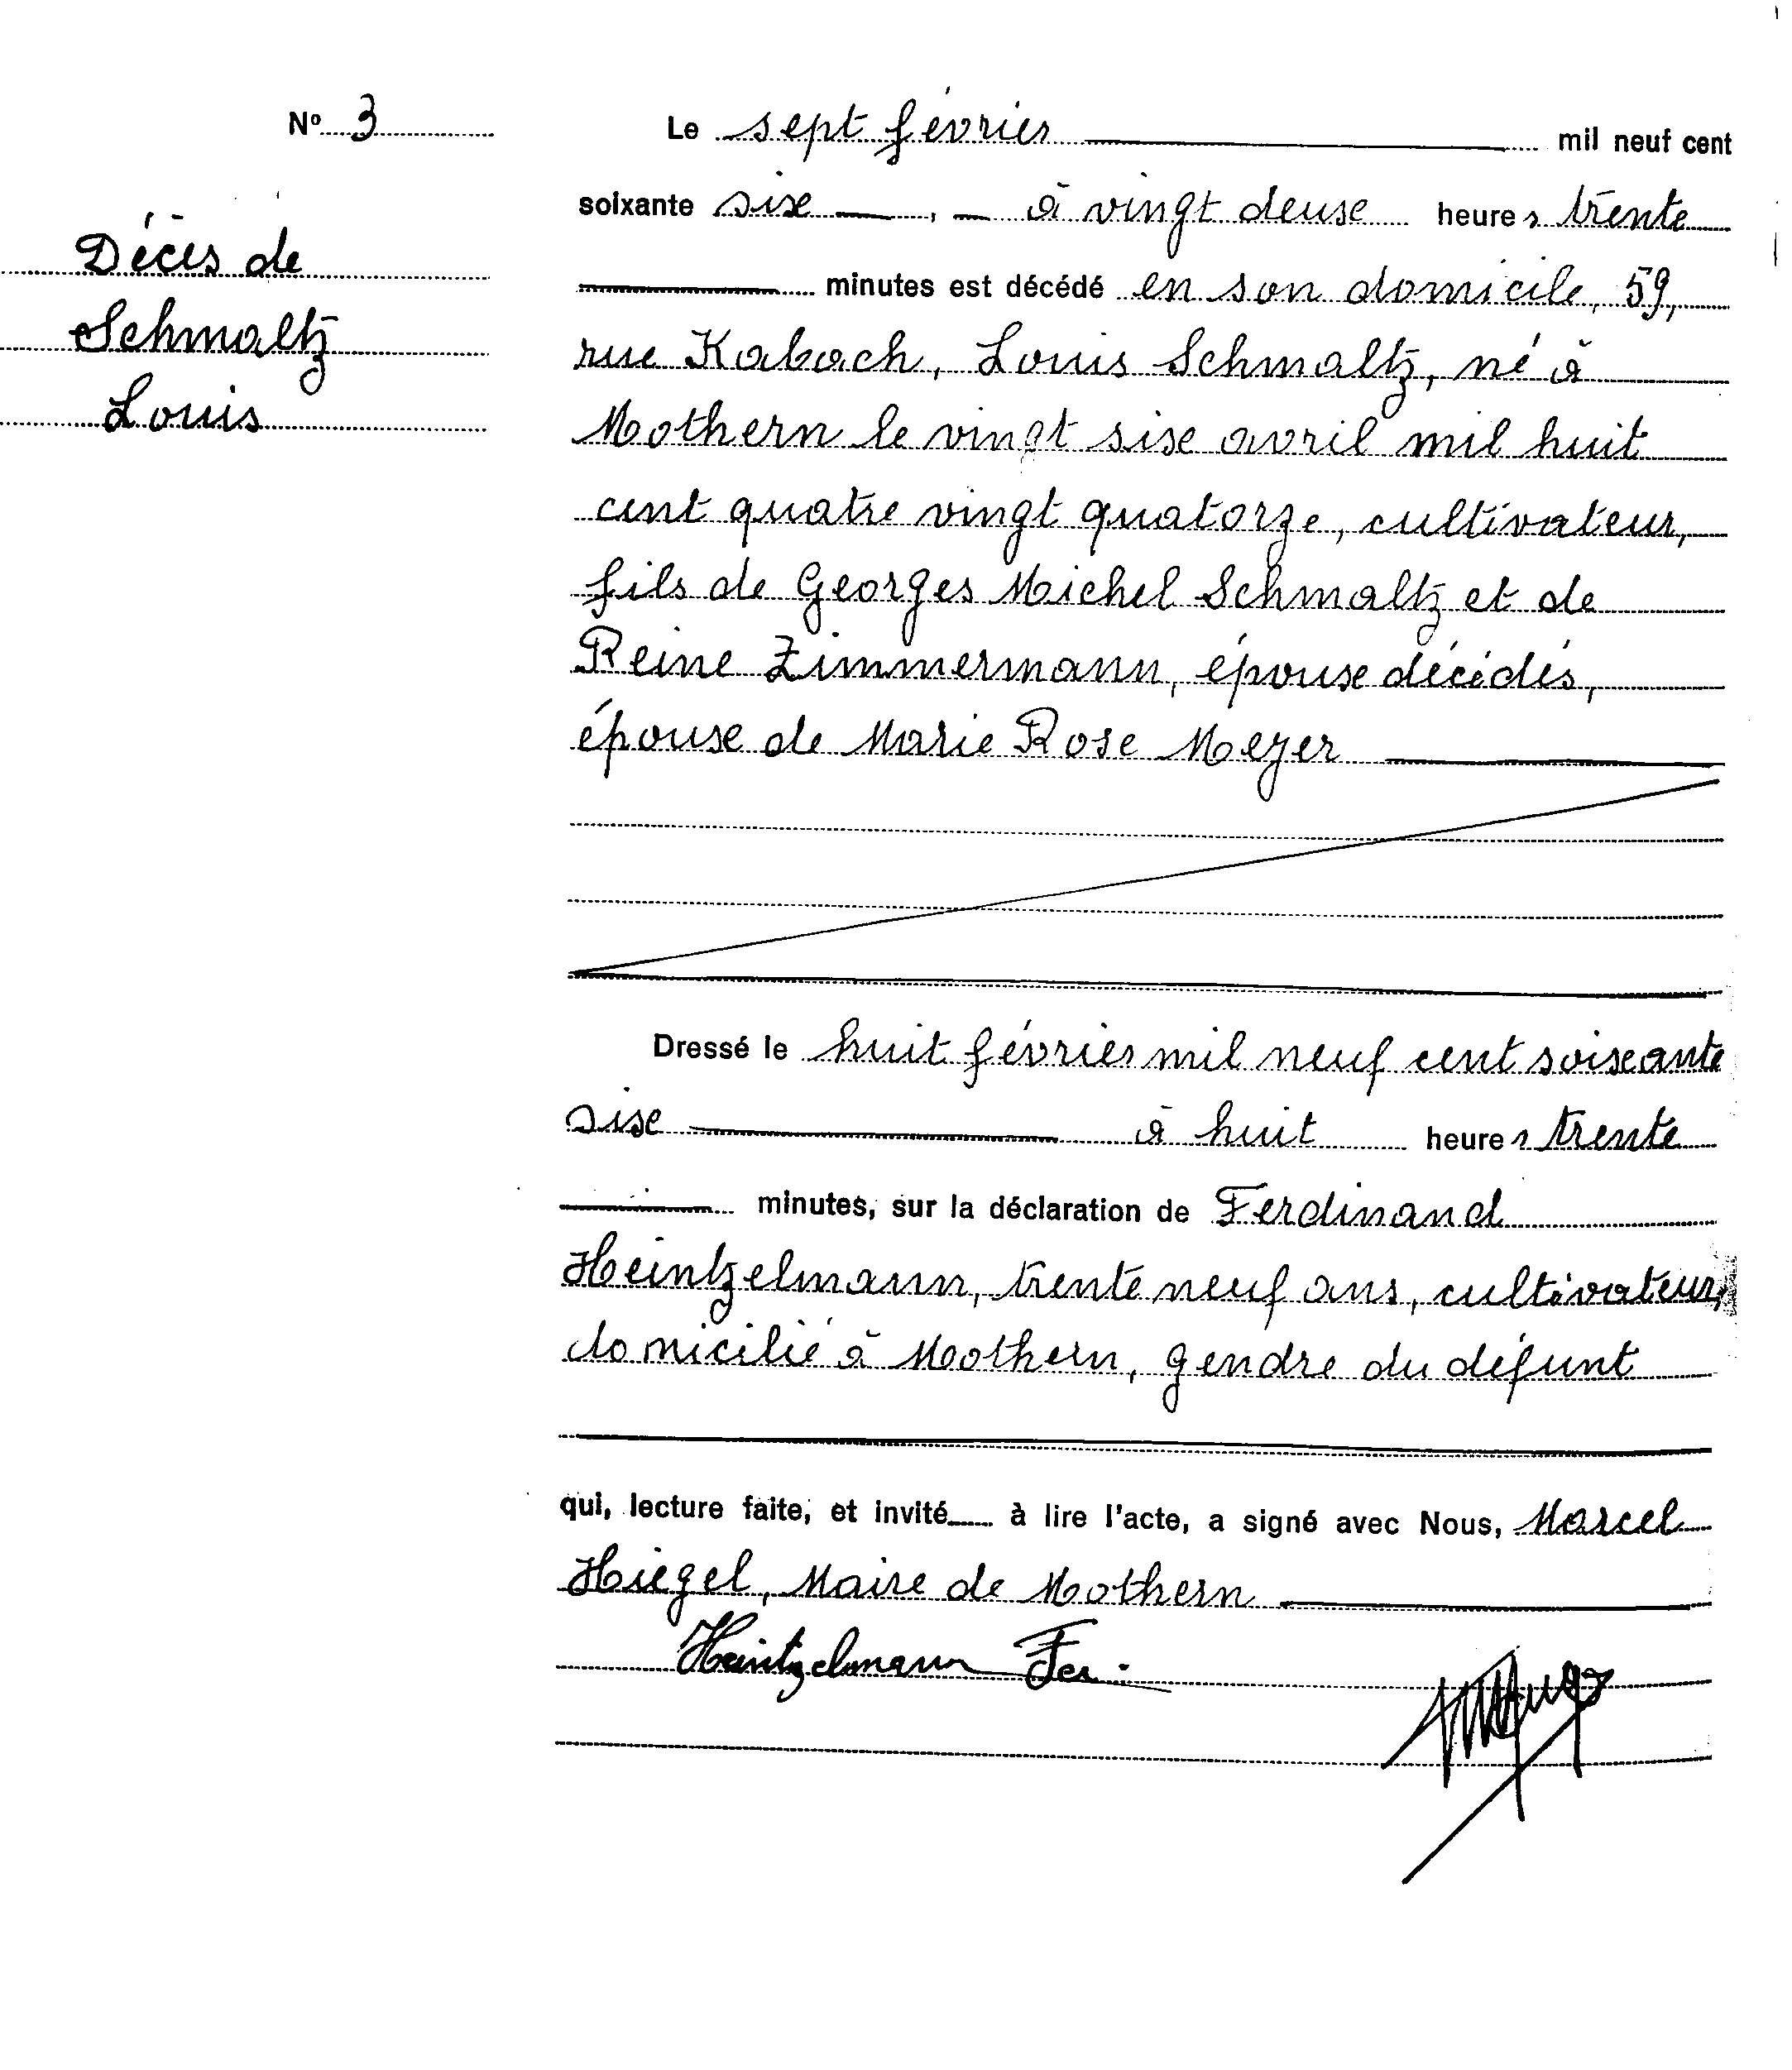 N° 3
Décès de
Schmaltz
Louis
Le sept février mil neuf cent
soixante six à vingt deux heures trente
minutes est décédé en son domicile, 59,
rue Kabach, Louis Schmaltz, né à
Mothern le vingt six avril mil huit
cent quatre vingt quatorze, cultivateur,
fils de Georges Michel Schmaltz et de
Reine Zimmermann, époux décédés,
époux de Marie Rose Meyer
Dressé le huit février mil neuf cent soixante
six à huit heures trente
minutes, sur la déclaration de Ferdinand
Heintzelmann, trente neuf ans, cultivateur,
domicilié à Mothern, gendre du défunt
qui, lecture faite, et invité à lire l'acte, a signé avec Nous, Marcel
Hiegel, Maire de Mothern
Heintzelmann Fer.